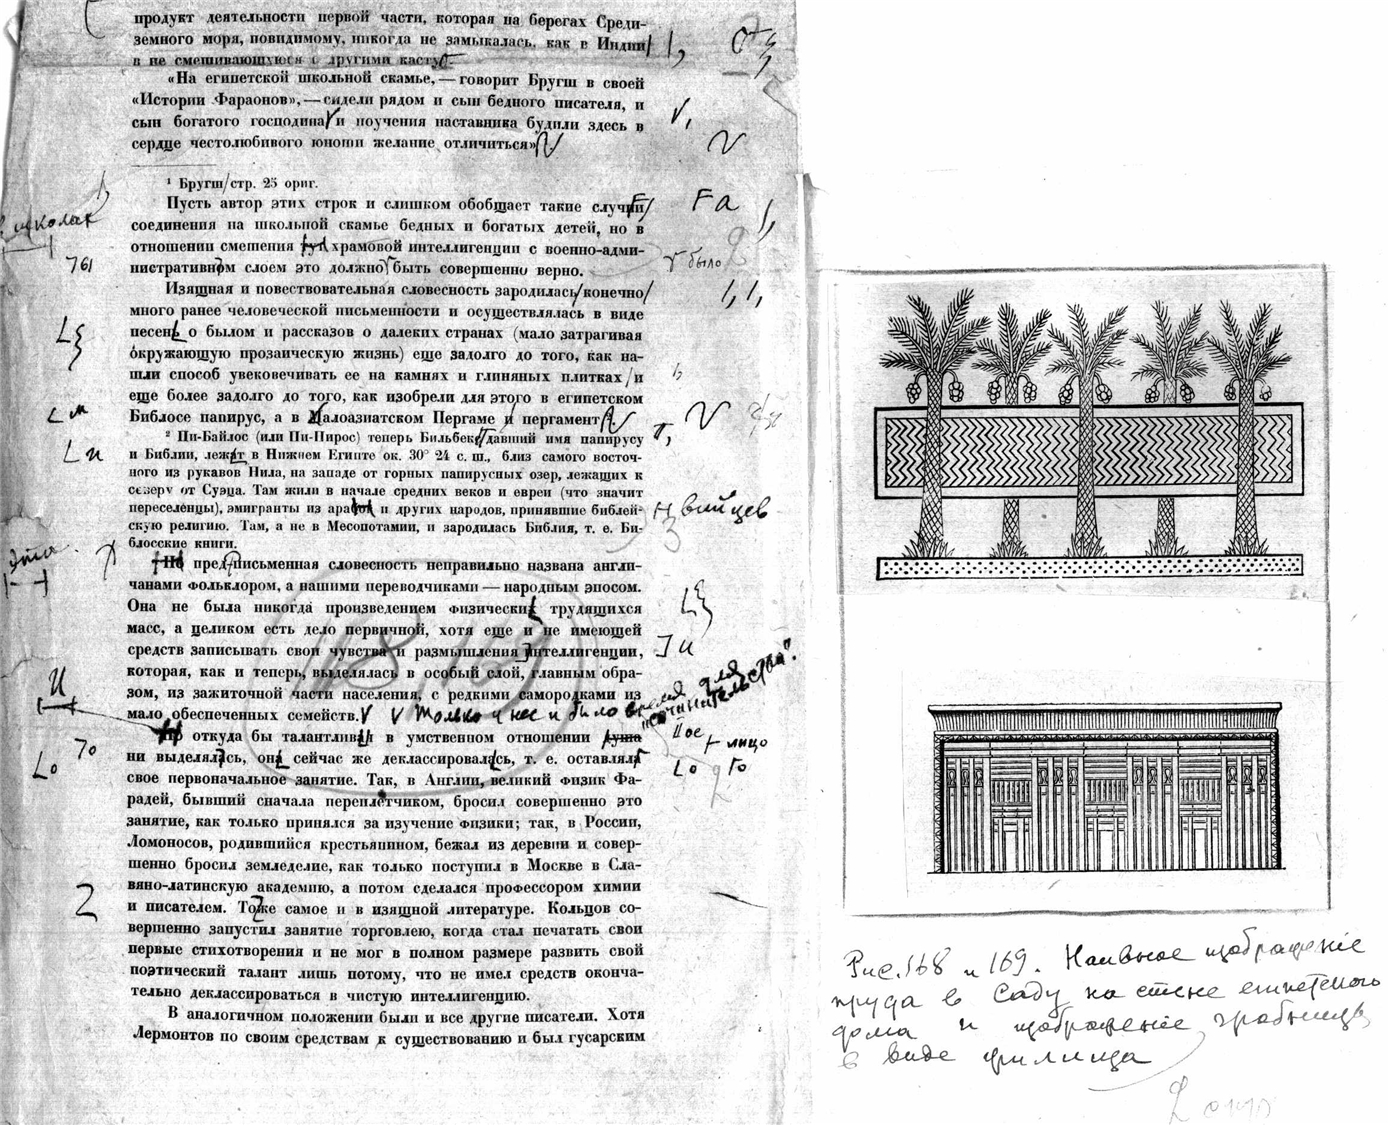 продукт деятельности первой части, которая на берегах Среди-
земного моря, повидимому, никогда не замыкалась, как в Индии
в не смешивающуюся с другими касту
«На египетской школьной скамье, — говорит Бругш в своей
«Истории Фараонов», — сидели рядом и сын бедного писателя, и
сын богатого господина и поучения наставника будили здесь в
сердце честолюбивого юноши желание отличиться»
¹ Бругш/стр. 25 ориг.
Пусть автор этих строк и слишком обобщает такие случаи
в школах
Fа
соединения на школьной скамье бедных и богатых детей, но в
отношении смешения храмовой интеллигенции с военно-адми-
нистративным слоем это должно быть совершенно верно.
было
Изящная и повествовательная словесность зародилась/конечно/
много ранее человеческой письменности и осуществлялась в виде
песень о былом и рассказов о далеких странах (мало затрагивая
окружающую прозаическую жизнь) еще задолго до того, как на-
шли способ увековечивать ее на камнях и глиняных плитках/и
еще более задолго до того, как изобрели для этого в египетском
Библосе папирус, а в Малоазиатском Пергаме и пергамент
м
² Пи-Байлос (или Пи-Пирос) теперь Бильбек давший имя папирусу
и Библии, лежит в Нижнем Египте ок. 30° 24 с. ш., близ самого восточ-
и
ного из рукавов Нила, на западе от горных папирусных озер, лежащих к
северу от Суэца. Там жили в начале средних веков и евреи (что значит
переселенцы), эмигранты из ара и других народов, принявшие библей-
скую религию. Там, а не в Месопотамии, и зародилась Библия, т. е. Би-
блосские книги.
Эта
Но пред письменная словесность неправильно названа англи-
чанами фольклором, а нашими переводчиками — народным эпосом.
Она не была никогда произведением физически трудящихся
масс, а целиком есть дело первичной, хотя еще и не имеющей
средств записывать свои чувства и размышления интеллигенции,
и
которая, как и теперь, выделялась в особый слой, главным обра-
зом, из зажиточной части населения, с редкими самородками из
мало обеспеченных семейств. Только у нее и было время для "сочинительства".
И
Но откуда бы талантливый в умственном отношении душа
лицо
ни выделялась, она сейчас же деклассировалась, т. е. оставляла
то
свое первоначальное занятие. Так, в Англии, великий физик Фа-
радей, бывший сначала переплетчиком, бросил совершенно это
занятие, как только принялся за изучение физики; так, в России,
Ломоносов, родившийся крестьянином, бежал из деревни и совер-
шенно бросил земледелие, как только поступил в Москве в Сла-
вяно-латинскую академию, а потом сделался профессором химии
и писателем. Тоже самое и в изящной литературе. Кольцов со-
вершенно запустил занятие торговлею, когда стал печатать свои
первые стихотворения и не мог в полном размере развить свой
поэтический талант лишь потому, что не имел средств оконча-
тельно деклассироваться в чистую интеллигенцию.
В аналогичном положении были и все другие писатели. Хотя
Лермонтов по своим средствам к существованию и был гусарским
Рис. 168 и 169. Наивное изображение
пруда в саду на стене египетского
дома и изображение гробницы
в виде жилища